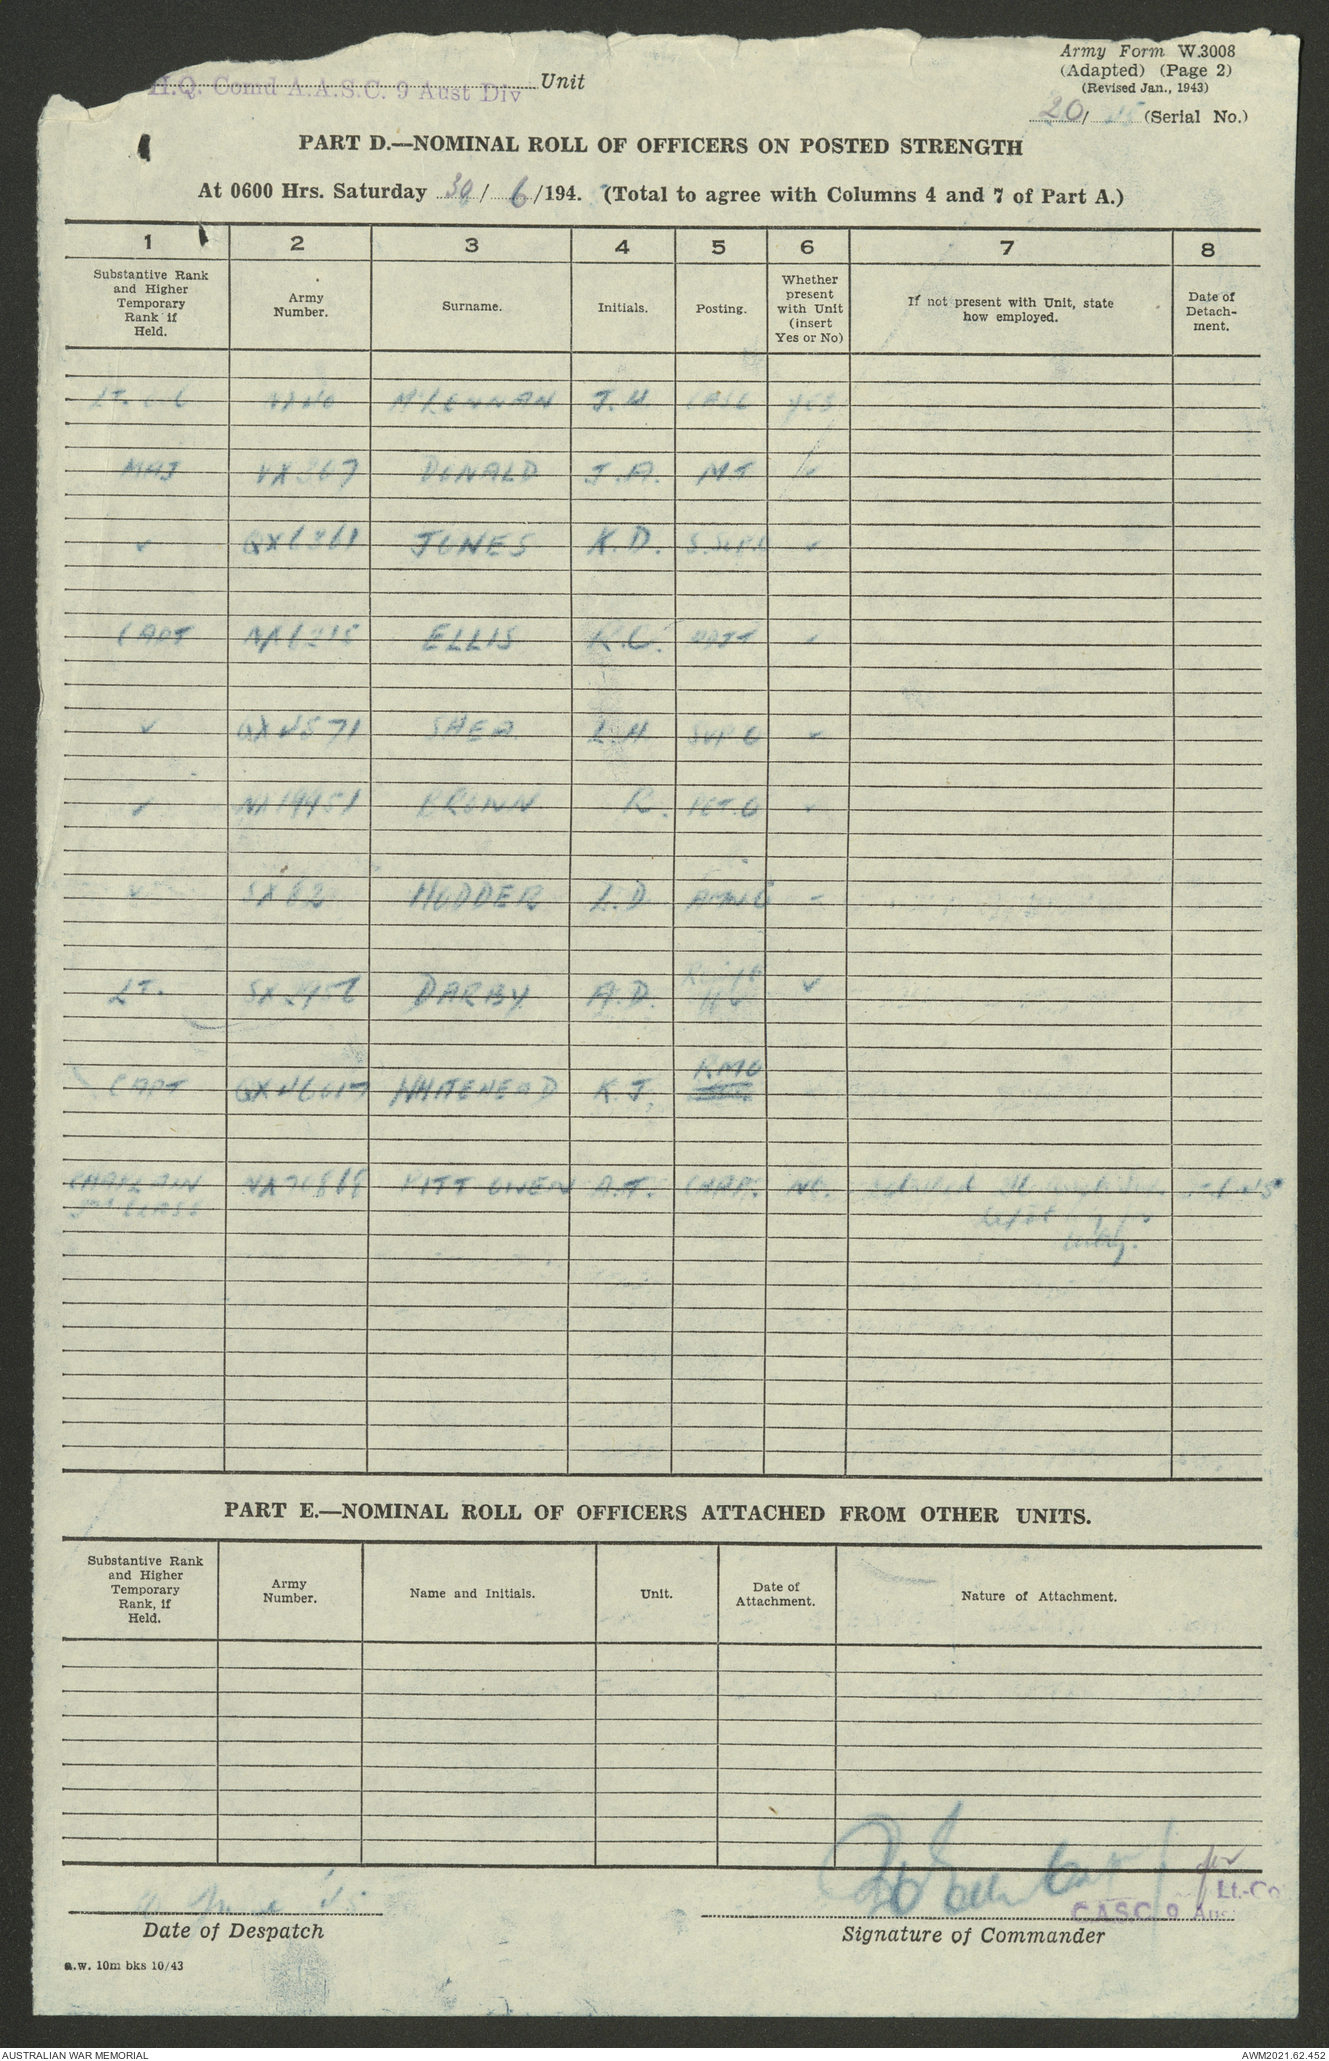 H.Q. Comd A.A.S.C. 9 Aust Div Unit
Army Form W.3008
(Adapted) (Page 2)
(Revised Jan., 1943)
20/ 45 (Serial No.)
PART D.—NOMINAL ROLL OF OFFICERS ON POSTED STRENGTH
At 0600 Hrs. Saturday 30/ 6/194. (Total to agree with Columns 4 and 7 of Part A.)
1 2 3 4 5 6 7 8
Substantive Rank
and Higher
Temporary
Rank if
Held.
Army
Number.
Surname.
Initials.
Posting.
Whether
present
with Unit
(insert
Yes or No)
If not present with Unit, state
how employed.
Date of
Detach-
ment.
Lt. Col McLENNAN J.H. CASC YES
MAJ VX367 DONALD J.A. M.T ✓
✓ QX6361 JONES K.D. ✓
CAPT NX6215 ELLIS K.C. ADJT ✓
✓ QX4571 SHEA L.H SUP O ✓
✓ NX19951 BROWN R. PET.O ✓
✓ SX82 HODDER L.D AMN O
LT. DARBY A.D. ✓
CAPT WHITEHEAD K.J. RMO
CHAPLAIN PITT OWEN A.T. CHAP. NO.
CLASS
PART E.—NOMINAL ROLL OF OFFICERS ATTACHED FROM OTHER UNITS.
Substantive Rank
and Higher
Temporary
Rank, if
Held.
Army
Number.
Name and Initials.
Unit.
Date of
Attachment.
Nature of Attachment.
June 45
for
Lt.-Co
C.A.S.C. 9 Aus
Date of Despatch
Signature of Commander
a.w. 10m bks 10/43
AUSTRALIAN WAR MEMORIAL
AWM2021.62.452